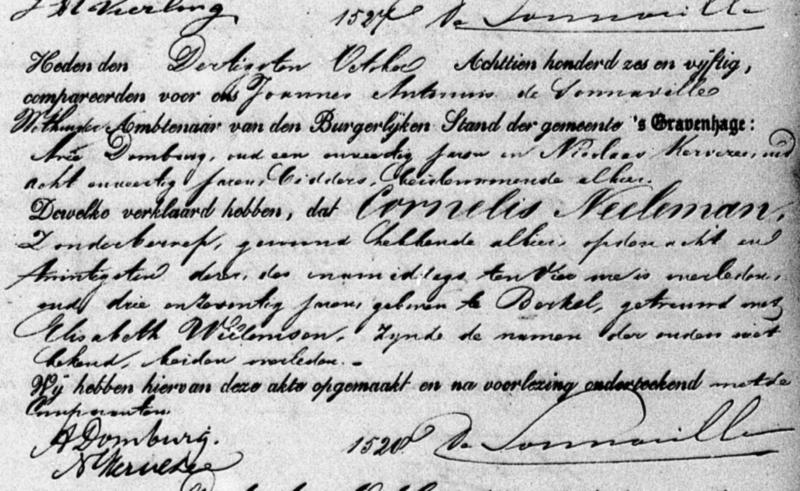 1527 de Sonnaville
Heden den Dertigsten October Achttien honderd zes en vijftig,
compareerden voor ons Joannes Antonius de Sonnaville
Wethouder Ambtenaar van den Burgerlijken Stand der gemeente 's Gravenhage:
Arie Domburg, oud een en veertig jaren en Nicolaas Kervezee, oud
acht en veertig jaren, bidders, beide wonende alhier.
Dewelke verklaard hebben, dat Cornelis Neeleman,
Zonder beroep, gewoond hebbende alhier, op den acht en
twintigsten dezer, des namiddags ten vier ure is overleden,
oud drie en zeventig jaren, geboren te Berkel, getrouwd met
Elisabeth Willemsen, zynde de namen der ouders niet
bekend, beiden overleden.
Wij hebben hiervan deze akte opgemaakt en na voorlezing onderteekend met de
Comparanten
A Domburg. 1528 de Sonnaville
N Kervezee